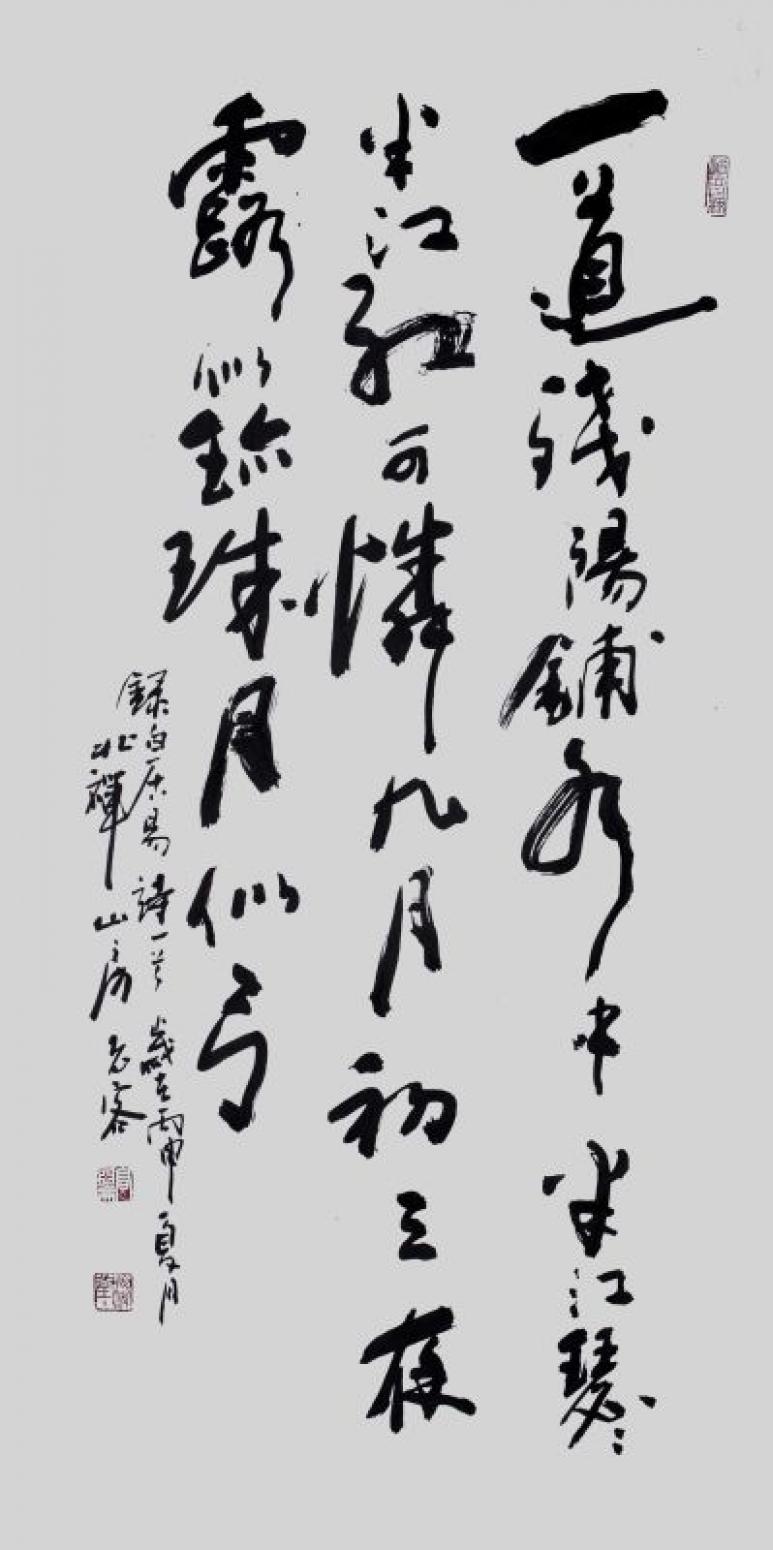 一道残陽鋪水中半江瑟〻
半江紅可憐九月初三夜
露似珍珠月似弓
錄白居易詩一首歲在丙申夏月
山房